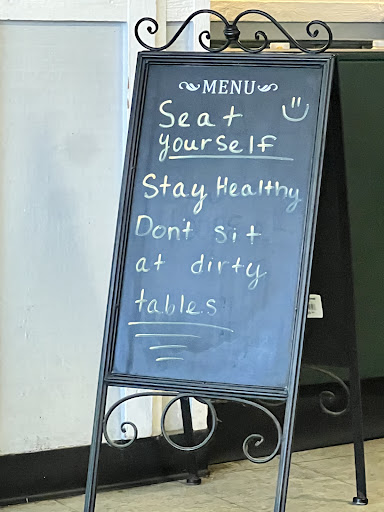 MENU
Seat
yourself
Stay Healthy
Don't sit
at dirty
tables